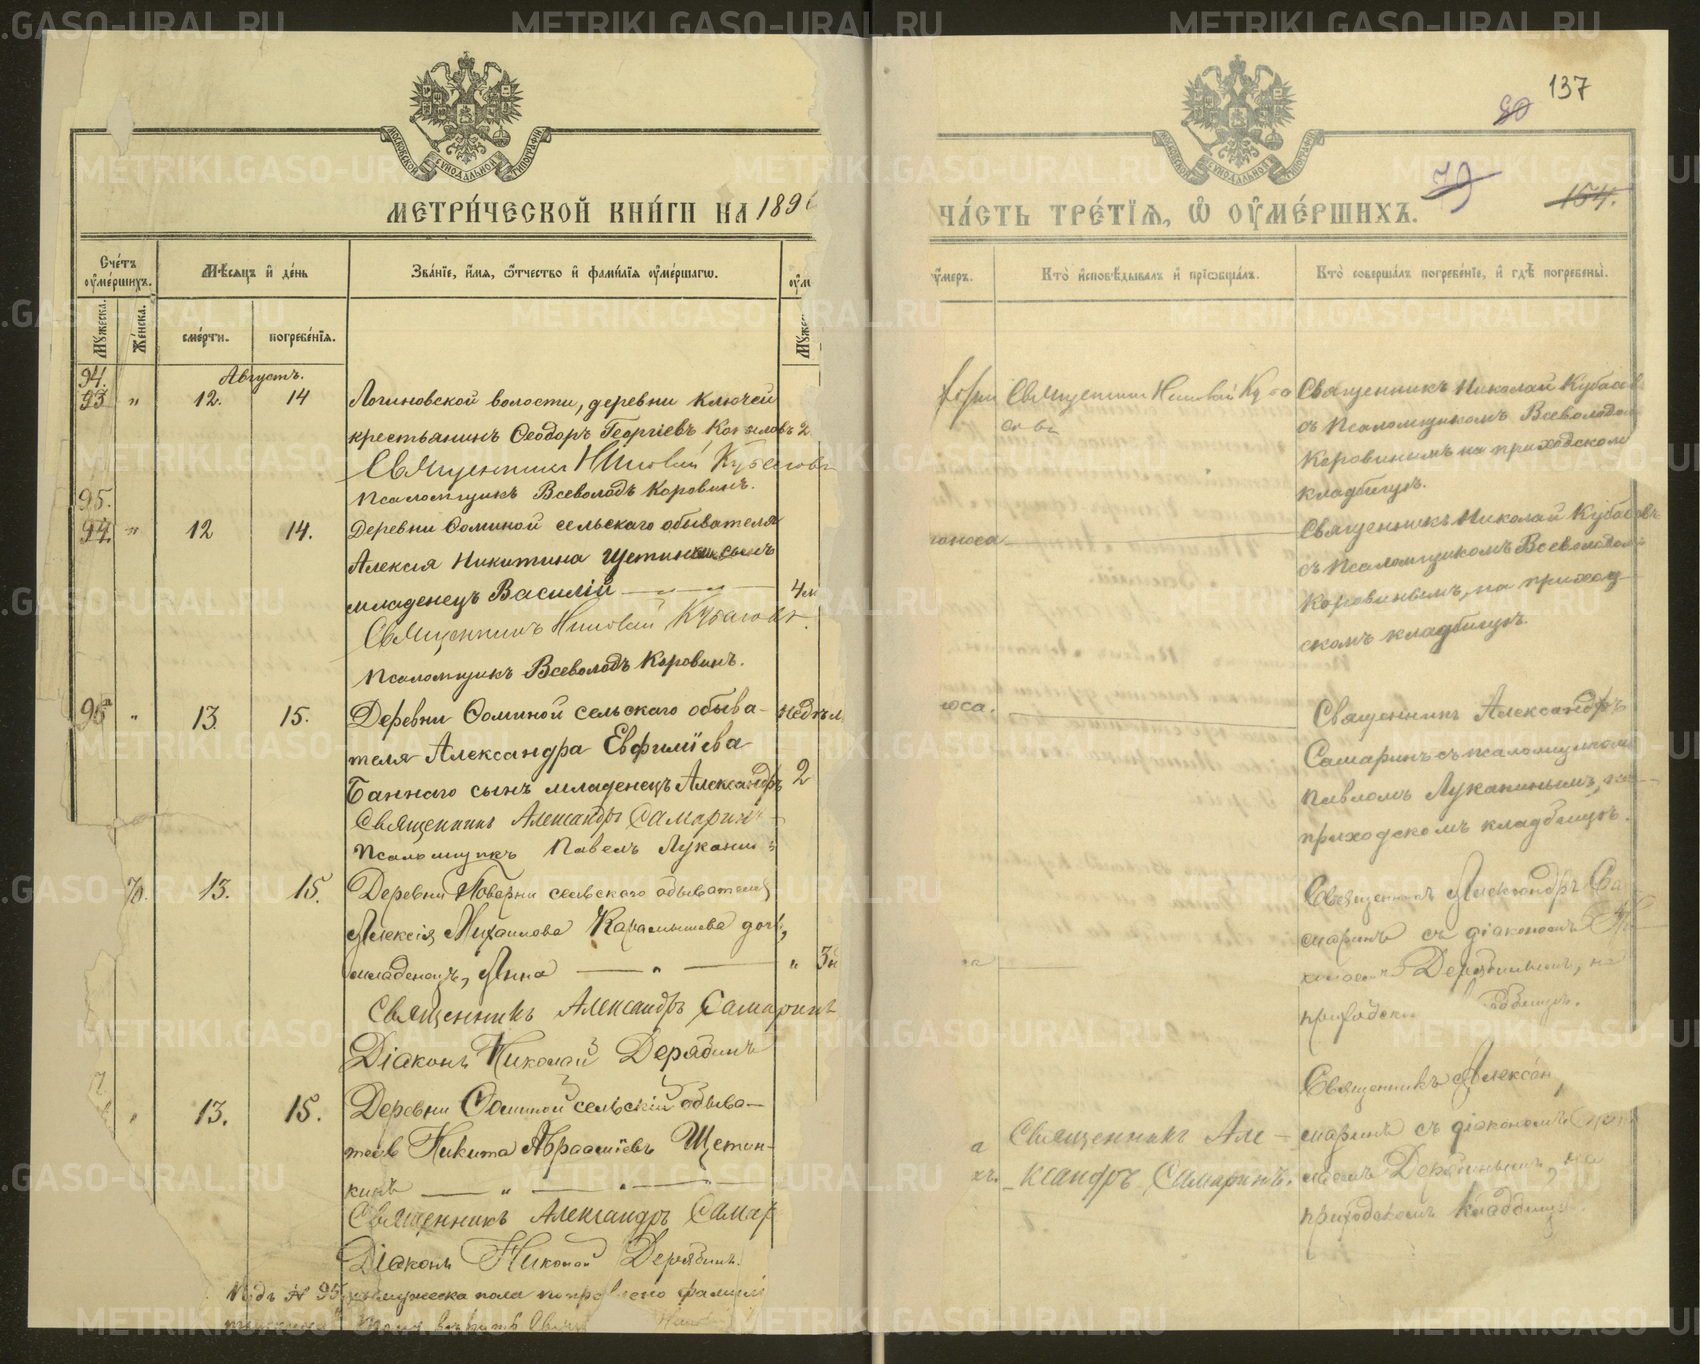 МЕТРИ́ЧЕСКОЙ КНИ́ГИ НА 189
Счéтъ оумéршихъ.
Мѣсяцъ и дéнь
Звáнїе, и́мя, ѻ́тчество и фами́лїя оумéршагѡ.
Мужеска.
Жéнска.
смéрти.
погребéнїя.
Августъ.
94.
93 " 12. 14 Логиновской волости, деревни Ключей
крестьянинъ Ѳеодоръ Георгіевъ Копыловъ 2
Священникъ Николай Кубасовъ
Псаломщикъ Всеволодъ Коровинъ.
95.
94. " 12 14. Деревни Ѳоминой сельскаго обывателя
Алексія Никитина Щетинкина сынъ
младенецъ Василій 4 м
Священникъ Николай Кубасовъ.
Псаломщикъ Всеволодъ Коровинъ.
96 " 13. 15. Деревни Ѳоминой сельскаго обыва- недѣл
теля Александра Евфиміева
Баннаго сынъ младенецъ Александръ 2
Священникъ Александръ Самаринъ
Псаломщикъ Павелъ Луканинъ
70. 13. 15. Деревни сельскаго обывателя
Алексія Михаилова Карамышева дочь,
младенецъ, Анна " 3 н
Священникъ Александръ Самаринъ
Діаконъ Николай Дерябинъ
" 13. 15. Деревни Ѳоминой сельскій обыва-
тель Никита Авраамїевъ Щетин-
кинъ
Священникъ Александръ Самар
Діаконъ Николай Дерябинъ.
Подъ № 95 мужеска пола фамилі
137
90
79
164.
ЧА́СТЬ ТРЕ́ТЇЯ, Ѡ ОУМЕ́РШИХЪ.
у́меръ.
Кто̀ исповѣ́дывалъ и прїѡбщáлъ.
Кто̀ совершáлъ погребéнїе, и гдѣ̀ погребены̀.
Священникъ Николай Кубасовъ
Священникъ Николай Кубасовъ
съ Псаломщикомъ Всеволодомъ
Коровинымъ на приходском
кладбищѣ.
поноса
Священникъ Николай Кубасовъ
съ Псаломщикомъ Всеволодомъ
Коровинымъ, на приход-
скомъ кладбищѣ.
носа.
Священникъ Александръ
Самаринъ съ псаломщикомъ
Павломъ Луканинымъ, на
приходскомъ кладбищѣ.
Священникъ Александръ Са-
маринъ съ діакономъ Ни-
колаемъ Дерябинымъ, на
приходском кладбищѣ.
Священникъ Але-
ксандръ Самаринъ.
Священникъ Алексан
маринъ съ діакономъ Нико
лаемъ Дерябинымъ, на
приходскомъ кладбищѣ.
METRIKI.GASO-URAL.RU